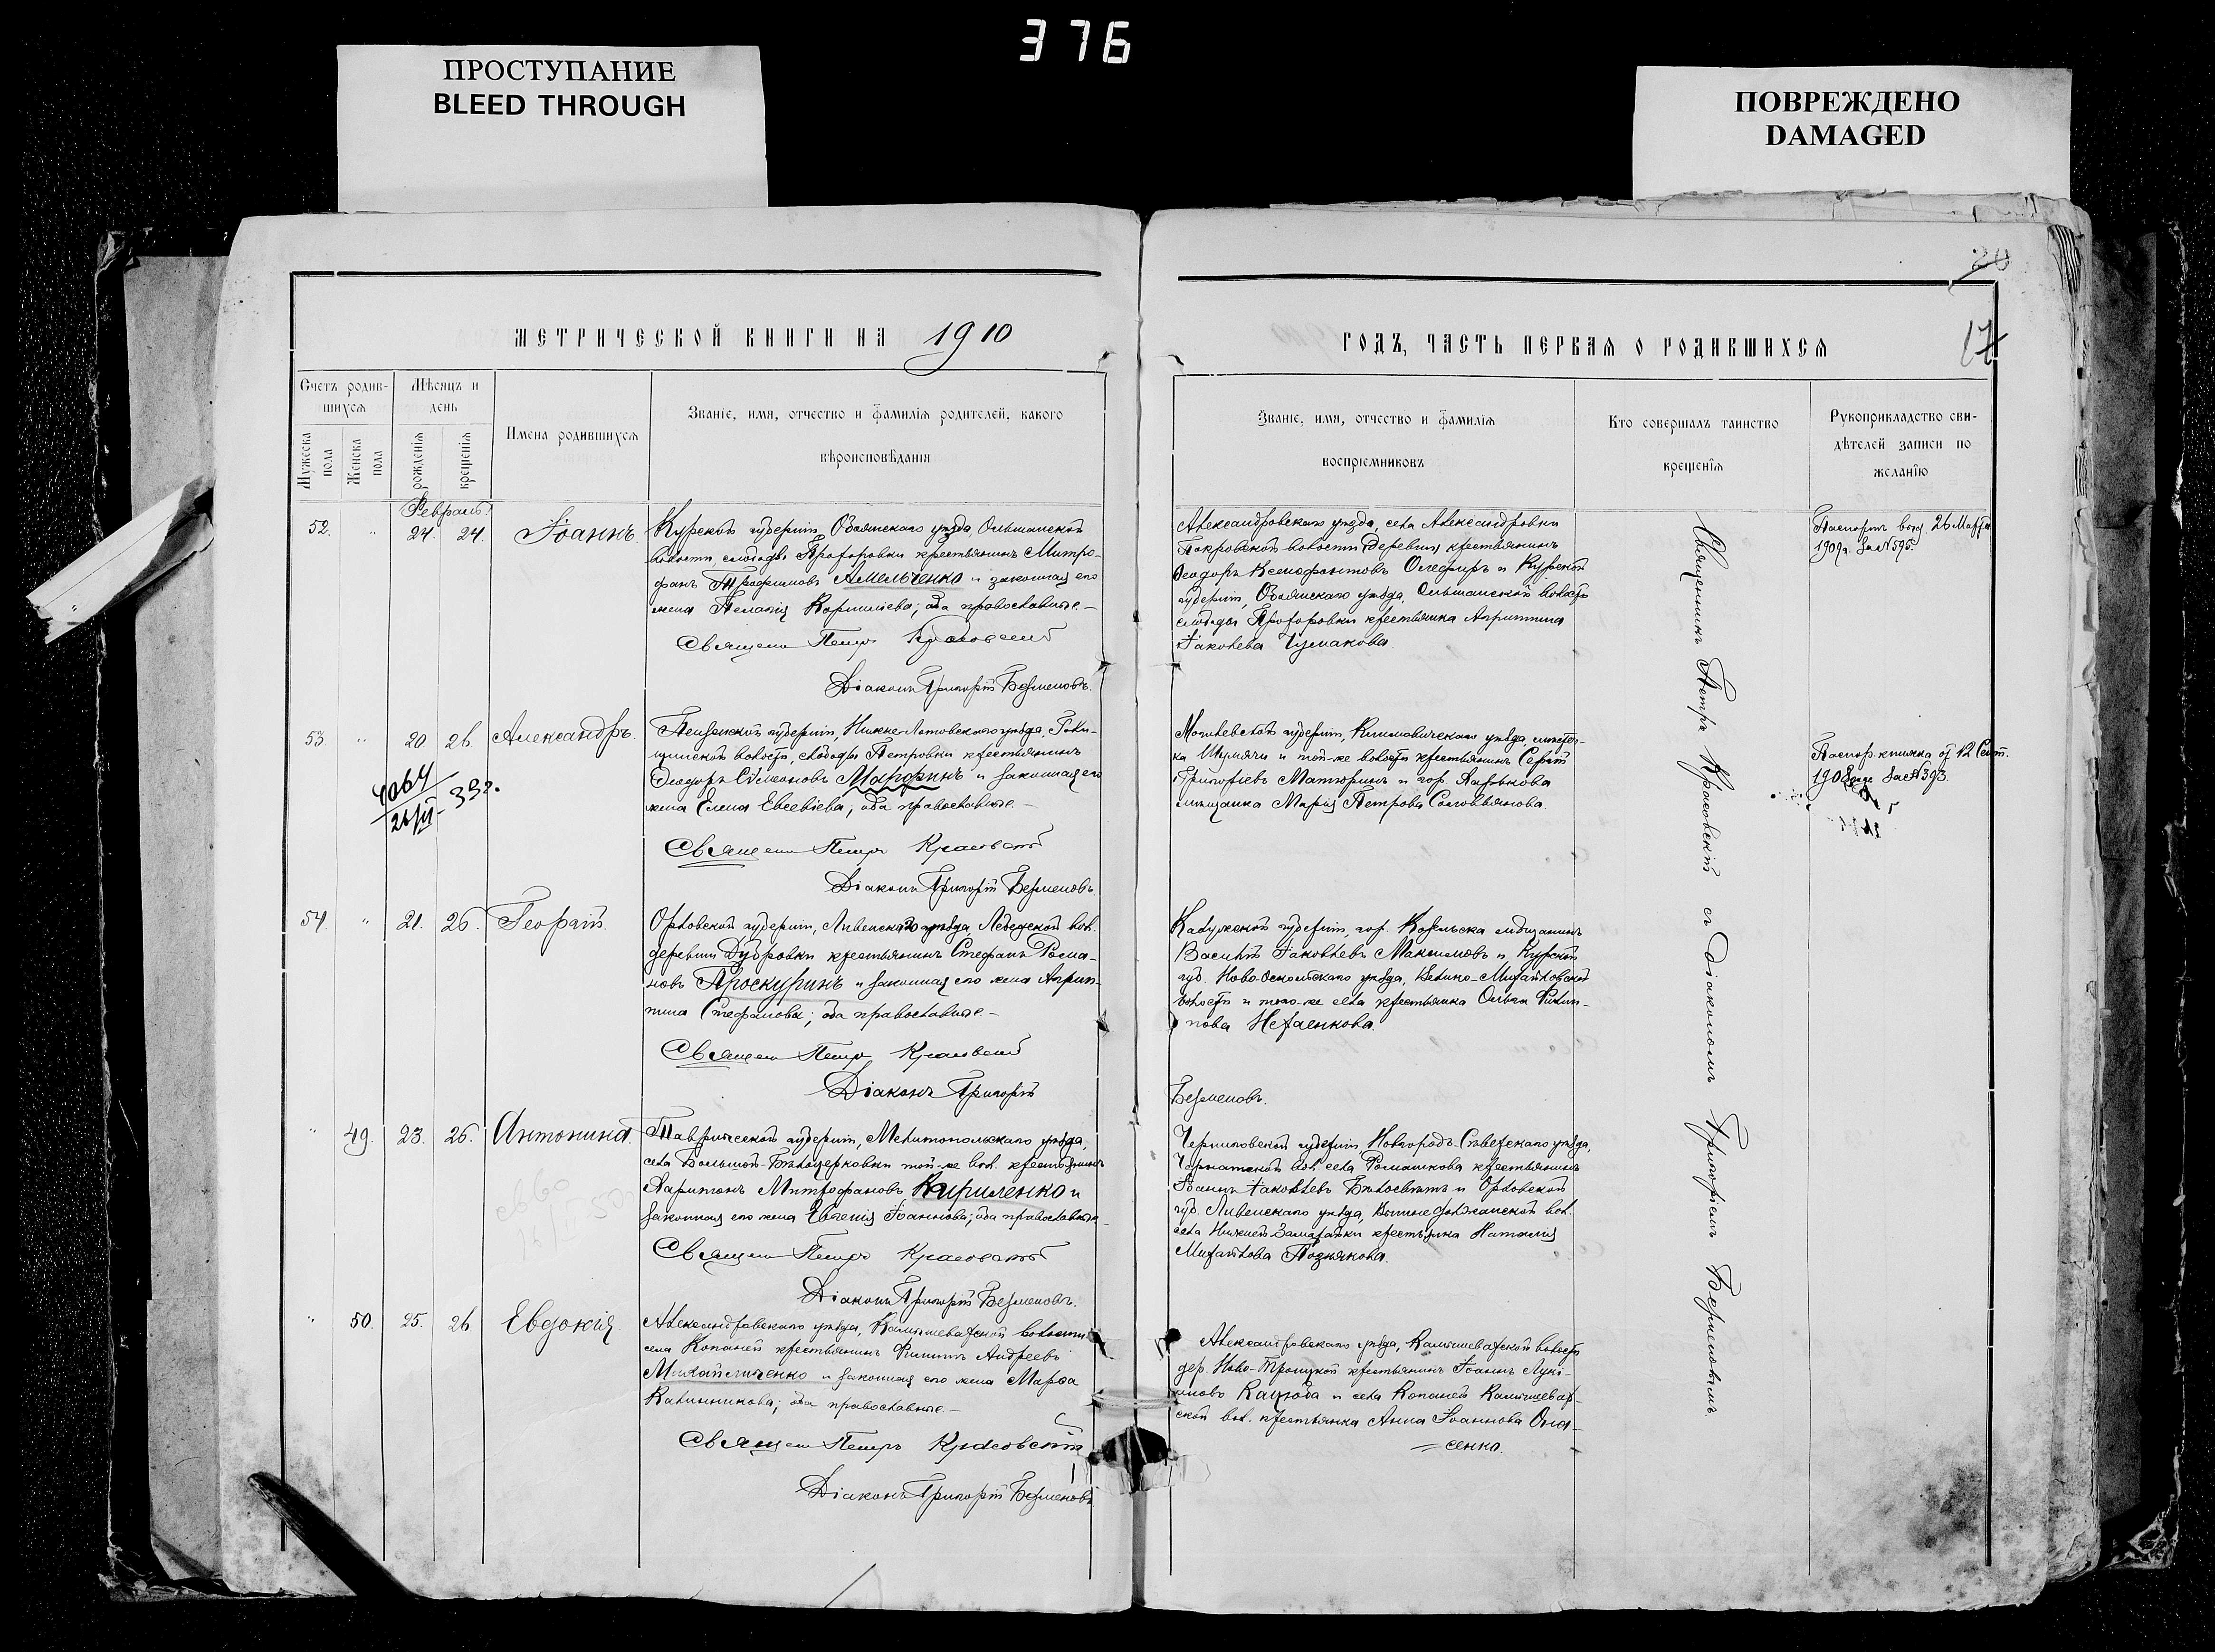 376
ПРОСТУПАНИЕ
BLEED THROUGH
ПОВРЕЖДЕНО
DAMAGED
20
17
МЕТРИЧЕСКОЙ КНИГИ НА 1910
Счетъ родив-
шихся
Мѣсяцъ и
день
Мужеска
пола
Женска
пола
рожденія
крещенія
Имена родившихся
Званіе, имя, отчество и фамилія родителей, какого
вѣроисповѣданія
Февраль
52. " 24. 24. Іоаннъ.
Курской губерніи, Обоянскаго уѣзда, Ольшанской
волости, слободы Прохоровки крестьянинъ Митро-
фанъ Трофимовъ Амельченко и законная его
жена Пелагія Корнилiева; оба православные.—
Священ Петръ Красовскій
Діаконъ Григорій Безменовъ.
53. " 20. 26. Александръ.
4064
26/III - 33г.
Пензенской губерніи, Нижне-Ломовскаго уѣзда,
волости, слободы Петровки крестьянинъ
Ѳеодоръ Сѵмеоновъ и законная его
жена Елена Евсевіева; оба православные.—
Священ Петръ Красовскій
Діаконъ Григорій Безменовъ.
54. " 21. 26. Георгій.
Орловской губерніи, Ливенскаго уѣзда, вол.
деревни Дубровки крестьянинъ Стефанъ Рома-
новъ Проскуринъ и законная его жена Агрип-
пина Стефанова; оба православные.—
Священ Петръ Красовскій
Діаконъ Григорій
" 49. 23. 26. Антонина.
Таврической губерніи, Мелитопольскаго уѣзда,
села Большой-Бѣлоцерковки той-же вол. крестьянинъ
Харитонъ Митрофановъ Кириленко и
законная его жена Евгенія Іоаннова; оба православные.
Священ Петръ Красовскій
Діаконъ Григорій Безменовъ.
" 50. 25. 26. Евдокія.
Александровскаго уѣзда, Камышеватской волости
села Копаней крестьянинъ Филиппъ Андреевъ
Михайличенко и законная его жена Марѳа
Калинникова; оба православные.—
Священ Петръ Красовскій
Діаконъ Григорій Безменовъ
ГОДЪ, ЧАСТЬ ПЕРВАЯ О РОДИВШИХСЯ
Званіе, имя, отчество и фамилія
воспріемниковъ
Кто совершалъ таинство
крещенія
Рукоприкладство сви-
дѣтелей записи по
желанію
Александровскаго уѣзда, села Александровки
Покровской волости крестьянинъ
Ѳеодоръ Ксенофонтовъ и Курской
губерніи, Обоянскаго уѣзда, Ольшанской волости
слободы Прохоровки крестьянка Агриппина
Іаковлева Чумакова.
Паспортъ выд. 26 Марта
1909г. за №595.
Могилевской губерніи, Климовичскаго уѣзда, мѣстеч-
ка Шумячи и той-же волости крестьянинъ Сергій
Григоріевъ и гор. Харькова
мѣщанка Марія Петрова
Паспор. книжка от 12 Сент.
за №393.
Калужской губерніи, гор. Козельска мѣщанинъ
Василій Іаковлевъ Максимовъ и Курской
губ. Ново-Оскольскаго уѣзда, Велико-Михайловской
волости и того-же села крестьянка Ольга Филип-
пова
Безменовъ.
Черниговской губерніи, Новгородъ-Сѣверскаго уѣзда,
вол. села Ромашкова крестьянинъ
Іоаннъ Іаковлевъ и Орловской
губ. Ливенскаго уѣзда, вол.
села Нижней крестьянка Наталія
Михайлова Позднякова.
Александровскаго уѣзда, Камышеватской волости
дер. Ново-Троицкой крестьянинъ Іоаннъ Лукі-
ановъ Кацюба и села Копаней Камышеват-
ской вол. крестьянка Анна Іоаннова
Священникъ Петръ Красовскій съ Діакономъ Григоріемъ Безменовымъ.